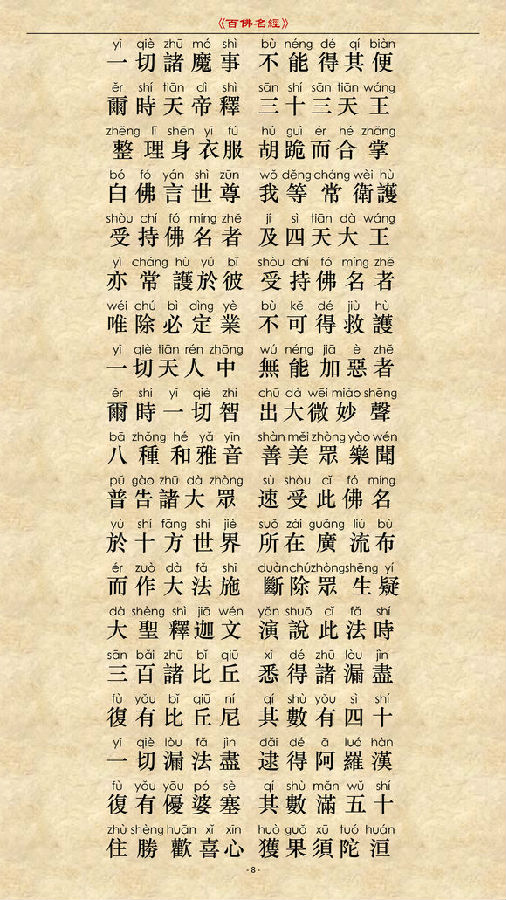 《百佛名經》
yī qiè zhū mó shì bù néng dé qí biàn
一切諸魔事 不能得其便
ěr shí tiān dì shì sān shí sān tiān wáng
爾時天帝釋 三十三天王
zhěng lǐ shēn yī fú hú guì ér hé zhǎng
整理身衣服 胡跪而合掌
bó fó yán shì zūn wǒ děng cháng wèi hù
白佛言世尊 我等常衛護
shòu chí fó míng zhě jí sì tiān dà wáng
受持佛名者 及四天大王
yì cháng hù yú bǐ shòu chí fó míng zhě
亦常護於彼 受持佛名者
wéi chú bì dìng yè bù kě dé jiù hù
唯除必定業 不可得救護
yī qiè tiān rén zhōng wú néng jiā è zhě
一切天人中 無能加惡者
ěr shí yī qiè zhì chū dà wēi miào shēng
爾時一切智 出大微妙聲
bā zhǒng hé yǎ yīn shàn měi zhòng yào wén
八種和雅音 善美眾樂聞
pǔ gào zhū dà zhòng sù shòu cǐ fó míng
普告諸大眾 速受此佛名
yú shí fāng shì jiè suǒ zài guǎng liú bù
於十方世界 所在廣流布
ér zuò dà fǎ shī duàn chú zhòng shēng yí
而作大法施 斷除眾生疑
dà shèng shì jiā wén yǎn shuō cǐ fǎ shí
大聖釋迦文 演說此法時
sān bǎi zhū bǐ qiū xī dé zhū lòu jìn
三百諸比丘 悉得諸漏盡
fù yǒu bǐ qiū ní qí shù yǒu sì shí
復有比丘尼 其數有四十
yī qiè lòu fǎ jìn dǎi dé ā luó hàn
一切漏法盡 逮得阿羅漢
fù yǒu yōu pó sè qí shù mǎn wǔ shí
復有優婆塞 其數滿五十
zhù shèng huān xǐ xīn huò guǒ xū tuó huán
住勝歡喜心 獲果須陀洹
-8-